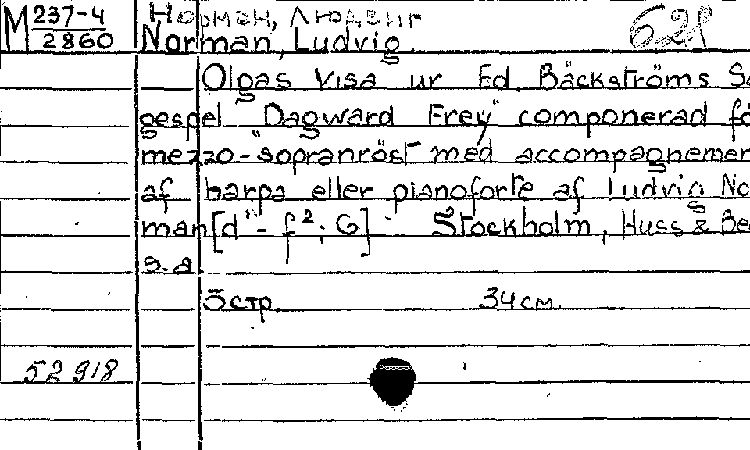 M 237-4
2860
Норман, Людвиг
628
Norman, Ludvig
Olgas Visa ur Ed. Bäckströms S
gespel "Dagward Frey" componerad fö
mezzo-sopranröst med accompagnemen
af harpa eller pianoforte af Ludvig No
man [d' - f²; G] Stockholm, Huss & Be
s.a.
5 стр. 34 см.
52918